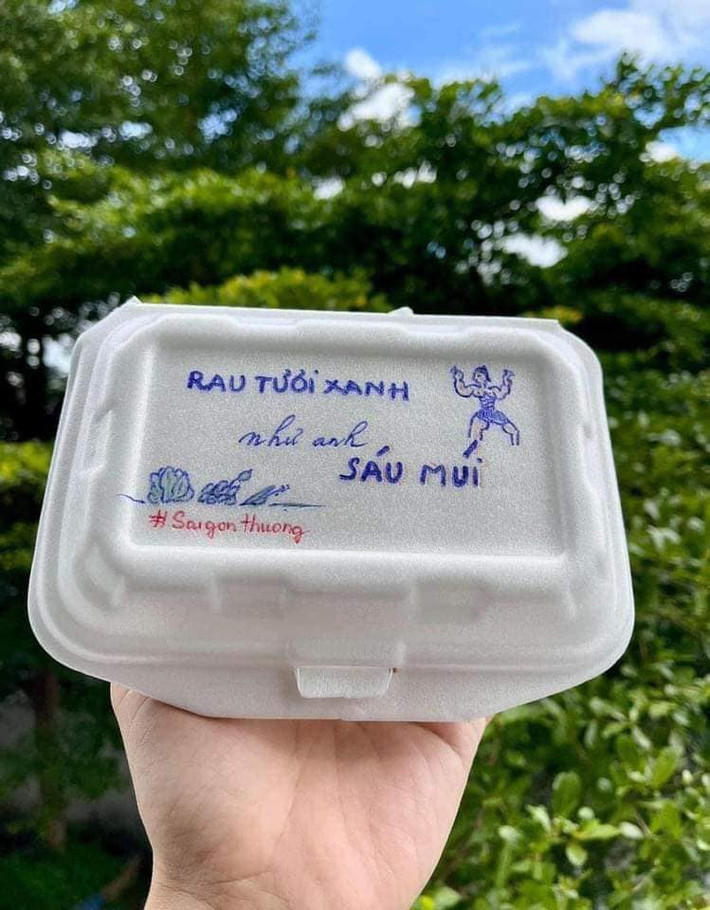 RAU TƯƠI XANH
như anh
SÁU MÚI
#Saigon thương